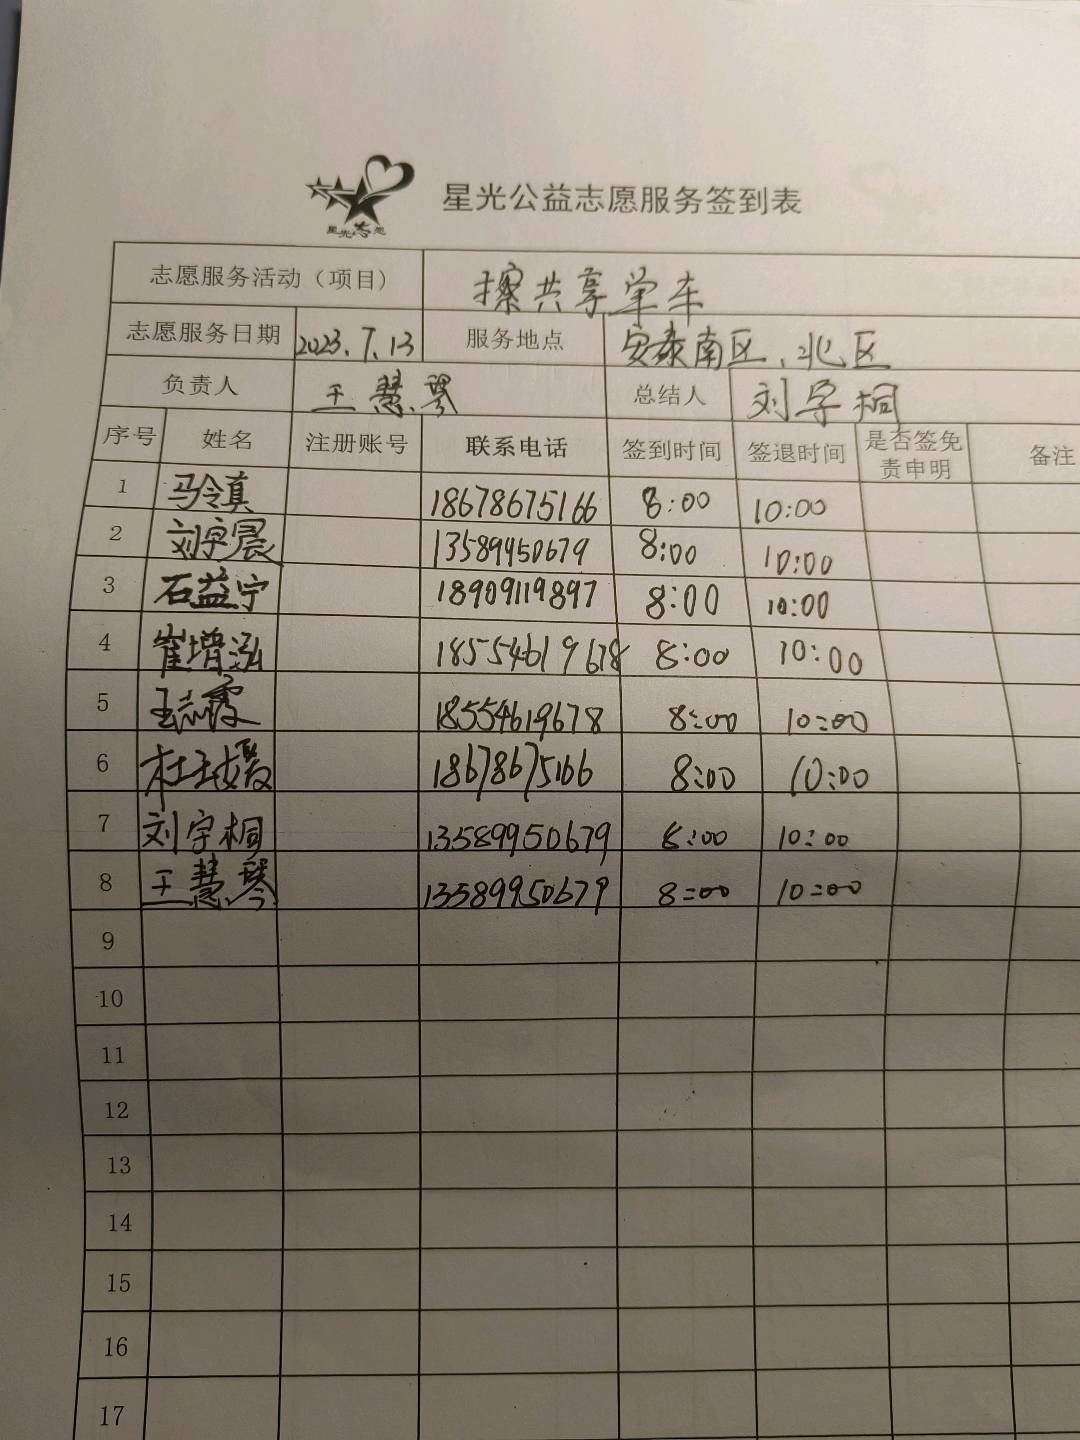 星光志愿
星光公益志愿服务签到表
志愿服务活动（项目） 擦共享单车
志愿服务日期 2023.7.13 服务地点 安泰南区、北区
负责人 王慧琴 总结人 刘宇桐
序号 姓名 注册账号 联系电话 签到时间 签退时间 是否签免责申明 备注
1 马令真 18678675166 8:00 10:00
2 刘宇晨 13589950679 8:00 10:00
3 石益宁 18909119897 8:00 10:00
4 崔增泓 18554619678 8:00 10:00
5 王志霞 18554619678 8:00 10:00
6 杜玉媛 18678675166 8:00 10:00
7 刘宇桐 13589950679 8:00 10:00
8 王慧琴 13589950679 8:00 10:00
9
10
11
12
13
14
15
16
17